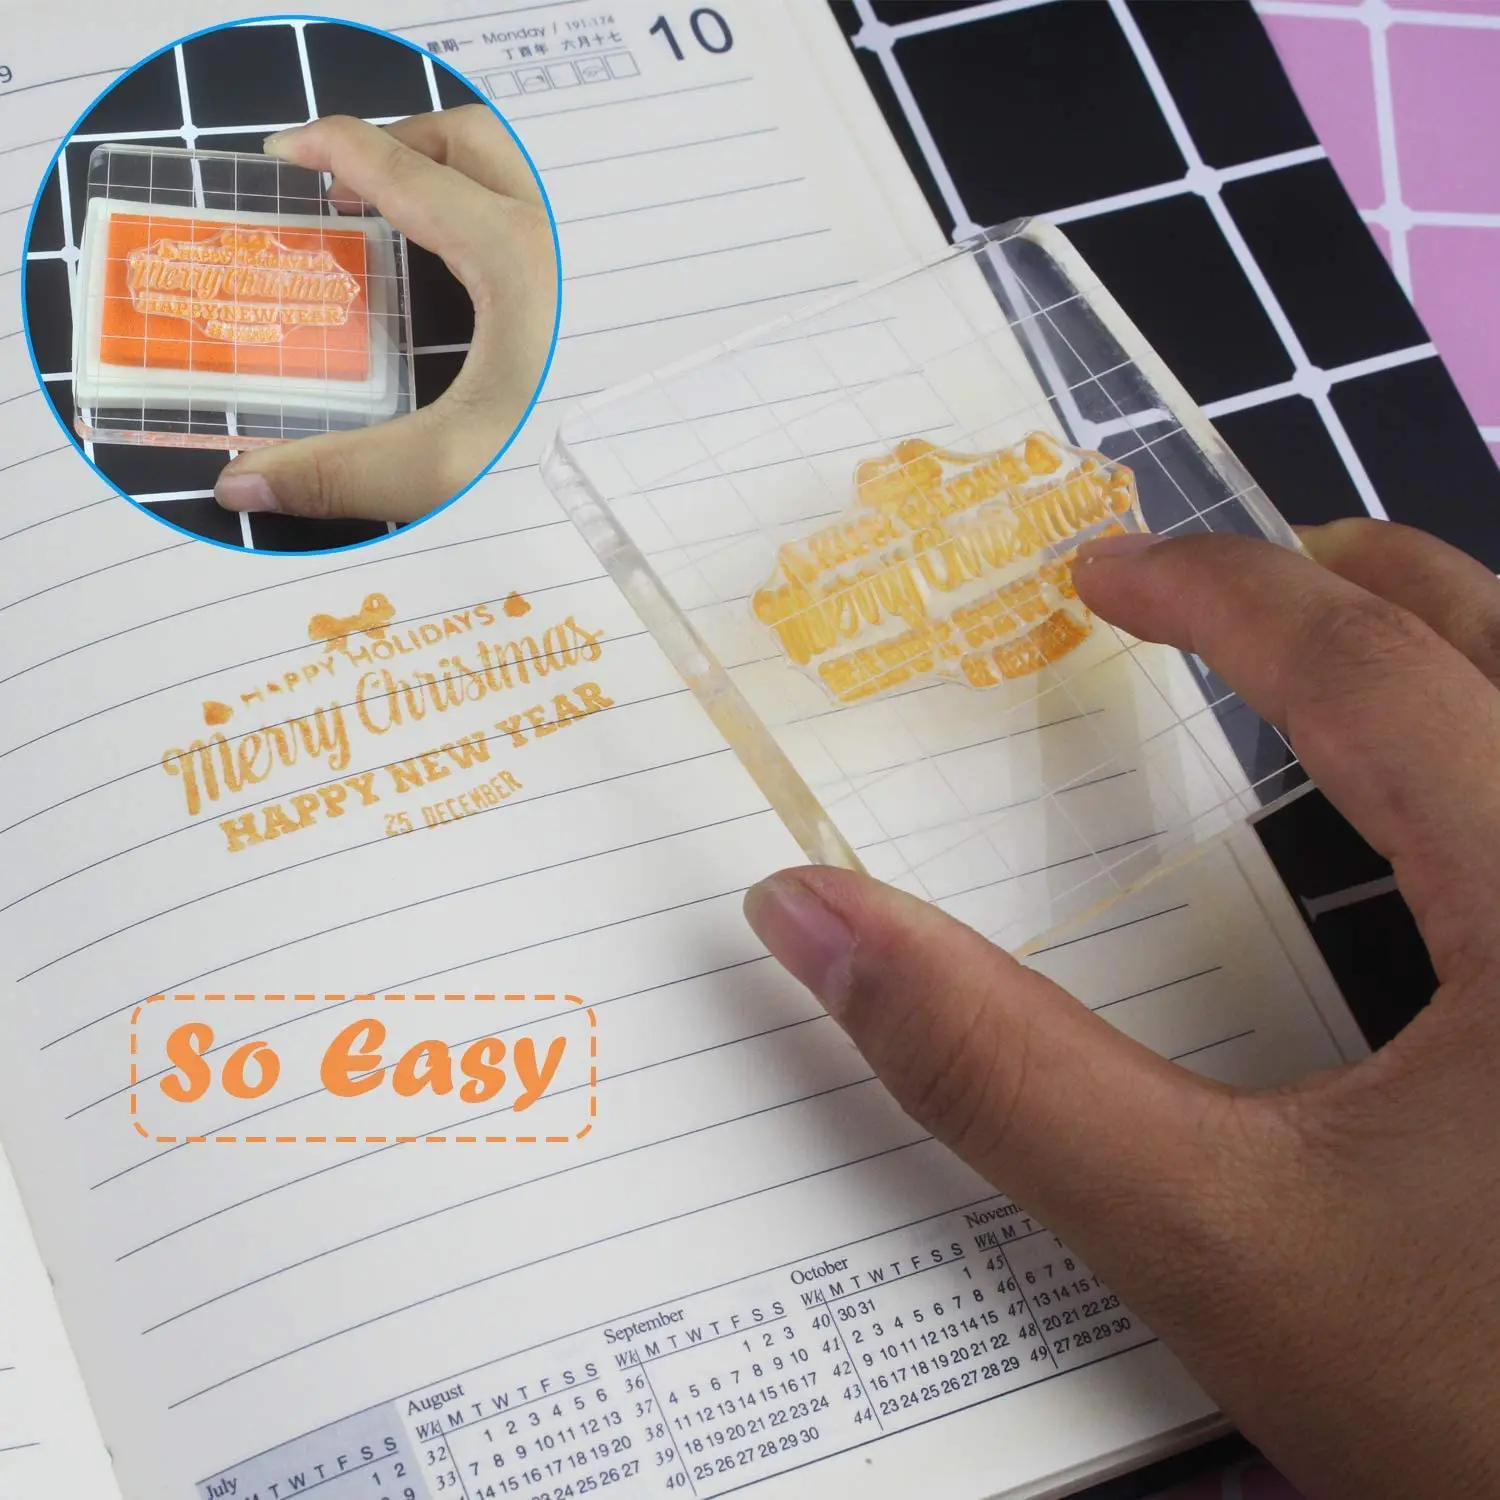 9
星期一 Monday / 191-174
丁酉年 六月十七
10
HAPPY HOLIDAYS
Merry Christmas
HAPPY NEW YEAR
HAPPY HOLIDAYS
Merry Christmas
HAPPY NEW YEAR
25 DECEMBER
Merry Christmas
So Easy
July
T W T F S S
1 2
9
August
Wk M T W T F S S
32 1 2 3 4 5 6
33 7 8 9 10 11 12 13
14 15 16 17 18 19 20
23 24 25 26 27
September
Wk M T W T F S S
36 1 2 3
37 4 5 6 7 8 9 10
38 11 12 13 14 15 16 17
39 18 19 20 21 22 23 24
40 25 26 27 28 29 30
October
Wk M T W T F S S
40 30 31 1
41 2 3 4 5 6 7 8
42 9 10 11 12 13 14 15
43 16 17 18 19 20 21 22
44 23 24 25 26 27 28 29
Novem
Wk M T
45 1
46 6 7 8
47 13 14 15
48 20 21 22 23
49 27 28 29 30